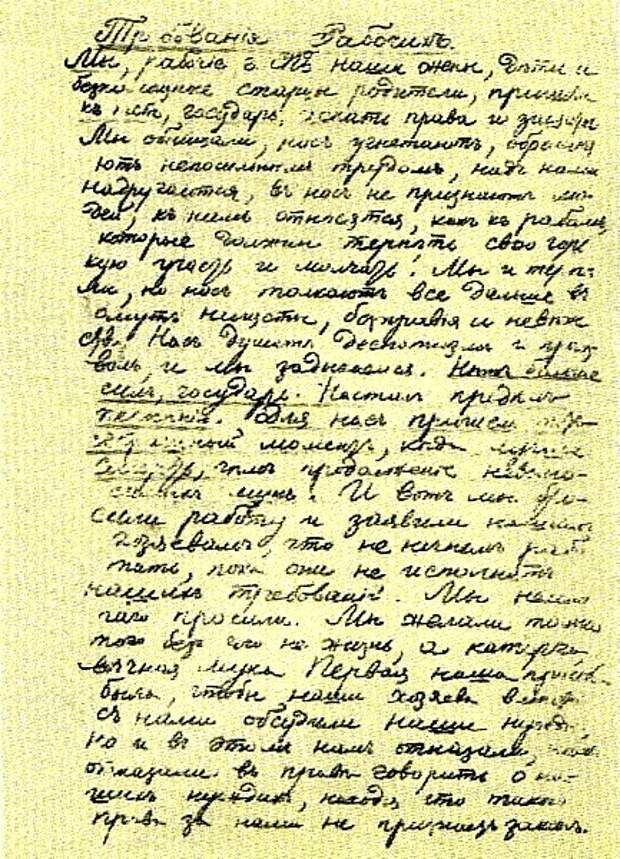 Требованія Рабочихъ.
Мы, рабочіе г. СПБ наши жены, дѣти и
безпомощные старцы родители, пришли
къ тебѣ, государь, искать правды и защиты
Мы обнищали, насъ угнетаютъ, обременя
ютъ непосильнымъ трудомъ, надъ нами
надругаются, въ насъ не признаютъ лю
дей, къ намъ относятся, какъ къ рабамъ,
которые должны терпѣть свою горь
кую участь и молчать. Мы и терпѣ
ли, но насъ толкаютъ все дальше въ
омутъ нищеты, безправья и невѣже
ства. Насъ душатъ деспотизмъ и произ
волъ, и мы задыхаемся. Нѣтъ больше
силъ, государь. Насталъ предѣлъ
терпѣнія. Для насъ пришелъ тотъ
страшный моментъ, когда лучше
смерть, чѣмъ продолженіе невыно-
симыхъ мукъ. И вотъ мы бро-
сили работу и заявили нашимъ
хозяевамъ, что не начнемъ рабо
тать, пока они не исполнятъ
нашихъ требованій. Мы не много
чего просили. Мы желали только
того безъ чего не жизнь, а каторга
вѣчная мука Первая наша просьба
была, чтобы наши хозяева вмѣстѣ
съ нами обсудили наши нужды,
но и въ этомъ намъ отказали, намъ
отказали въ правѣ говорить о на-
шихъ нуждахъ, находя, что такого
права за нами не признаетъ законъ.